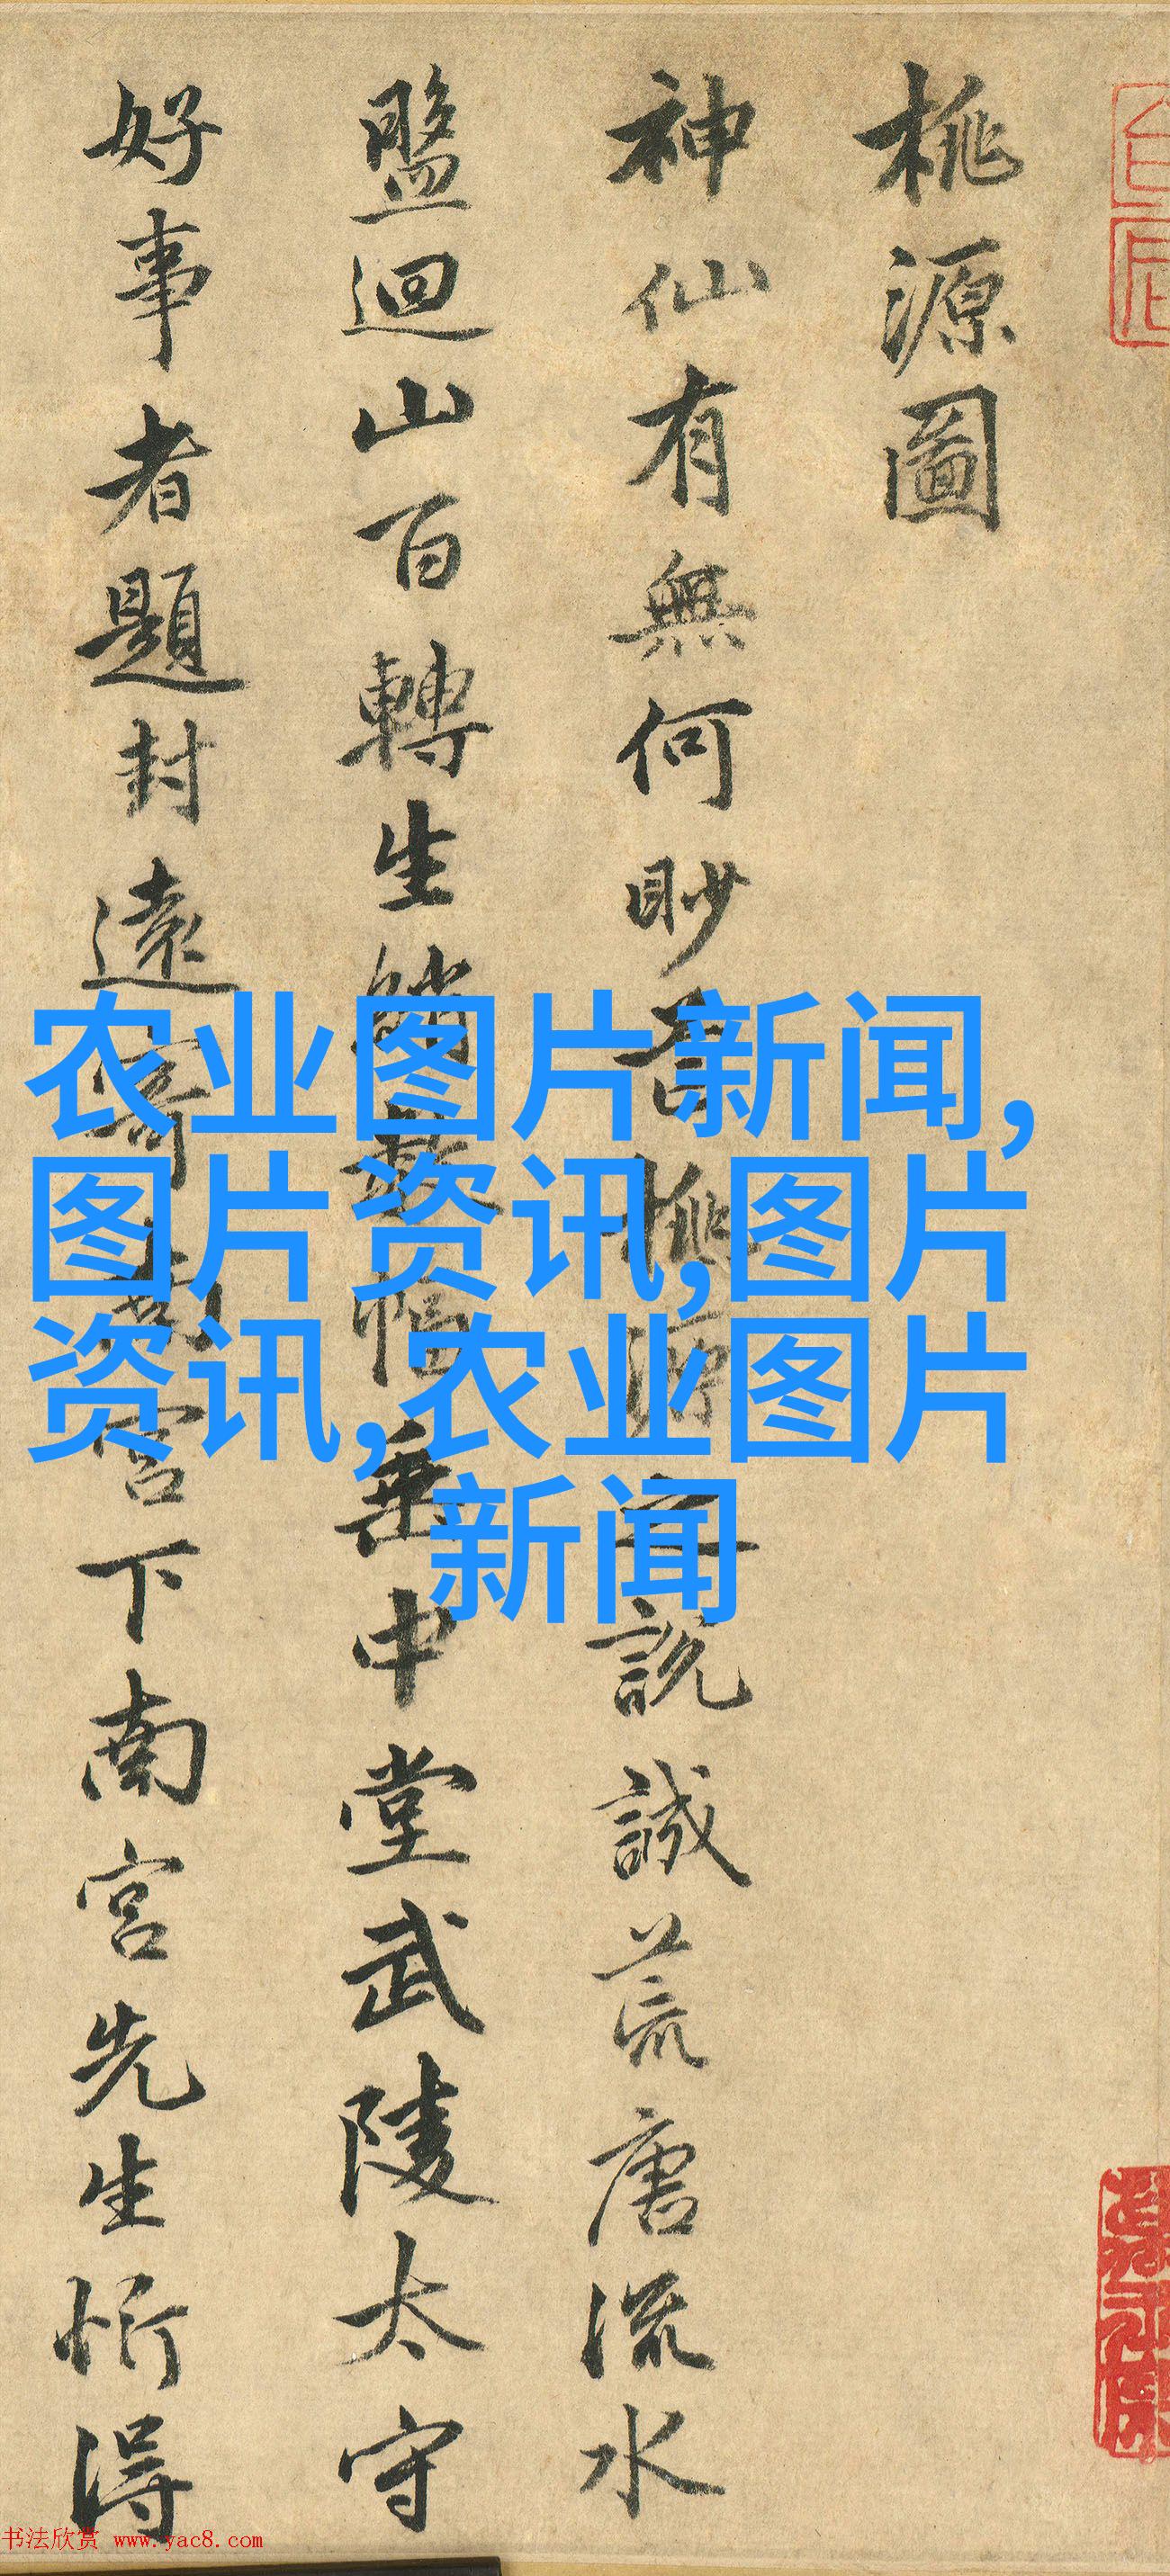 桃源圖
神仙有無何眇桃源說誠荒唐流水
盤迴山百轉生綃數幅垂中堂武陵太守
好事者題封遠寄南宮下南宮先生忻得
农业图片新闻,
图片资讯,图片
资讯,农业图片
新闻
书法欣赏 www.yac8.com